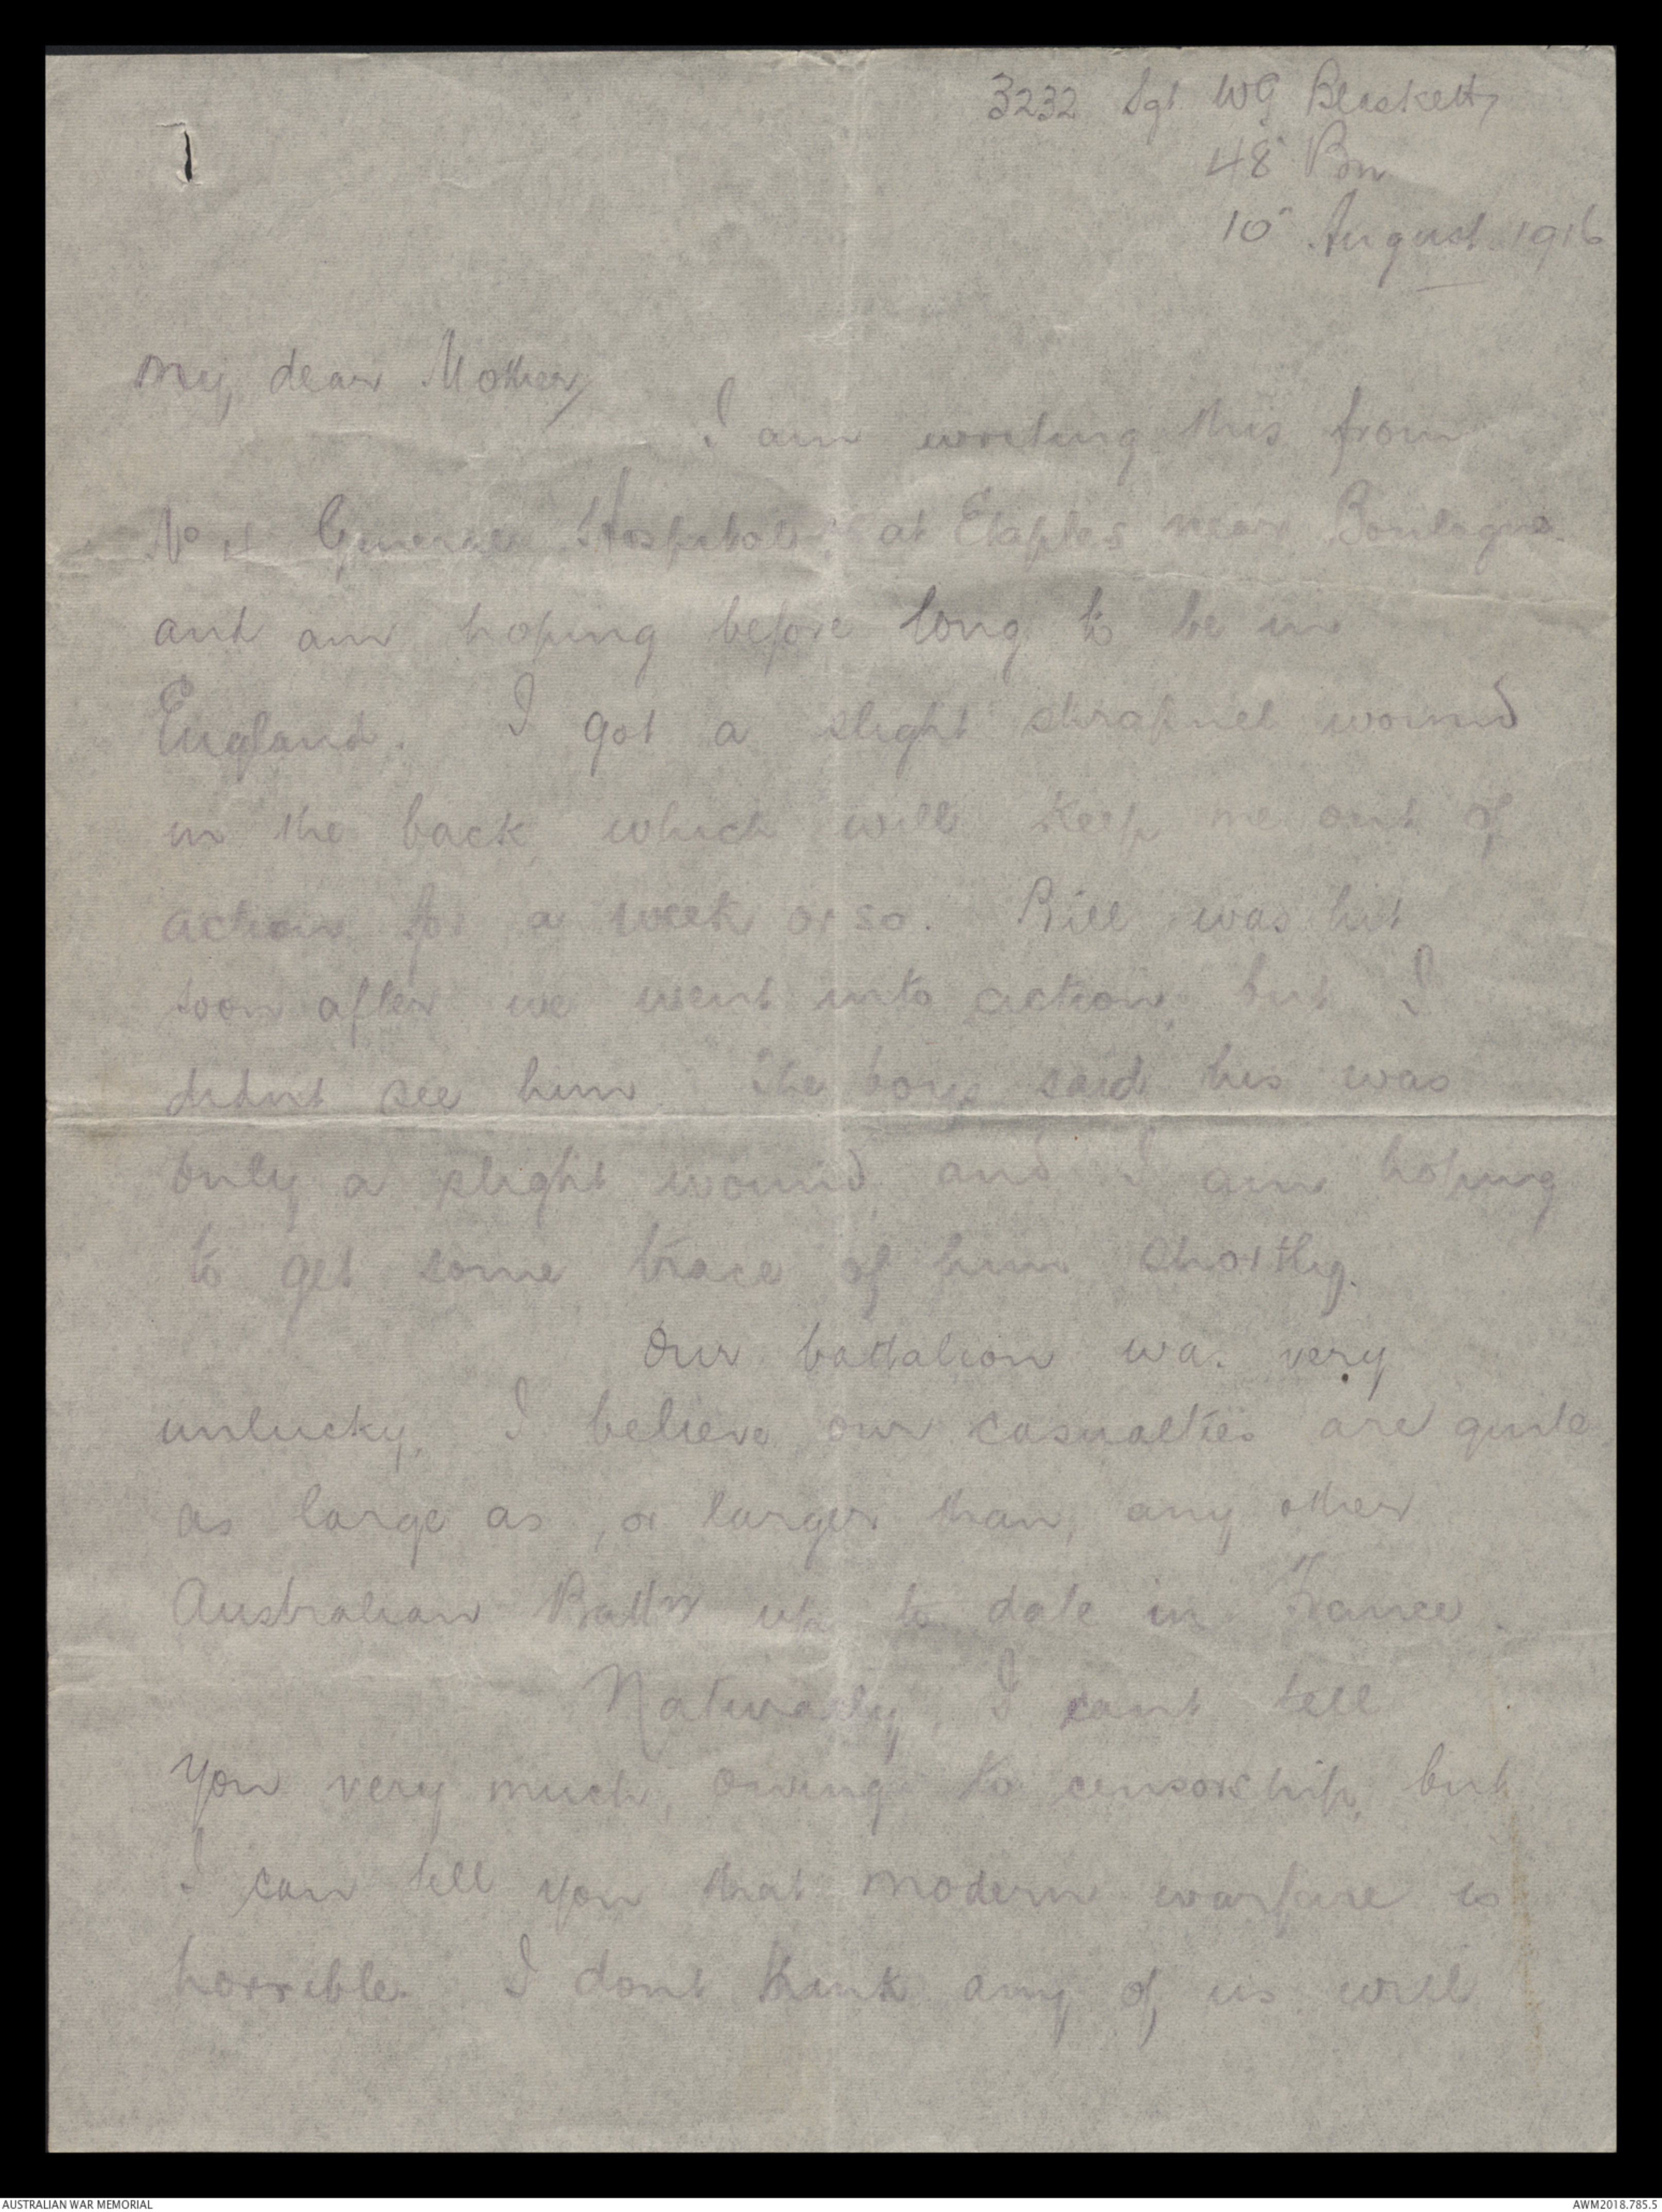 3232 Sgt WG Blaskett
48" Bn
10" August 1916
My dear Mother,
I am writing this from
No 4 General Hospital at Etaples near Boulogne
and am hoping before long to be in
England. I got a slight shrapnel wound
in the back which will keep me out of
action for a week or so. Bill was hit
soon after we went into action, but I
didnt see him. The boys said his was
only a slight wound and I am hoping
to get some trace of him shortly.
Our battalion was very
unlucky, I believe our casualties are quite
as large as, or larger than, any other
Australian Battn up to date in France.
Naturally, I cant tell
you very much, owing to censorship, but
I can tell you that modern warfare is
horrible. I dont think any of us will
AUSTRALIAN WAR MEMORIAL
AWM2018.785.5